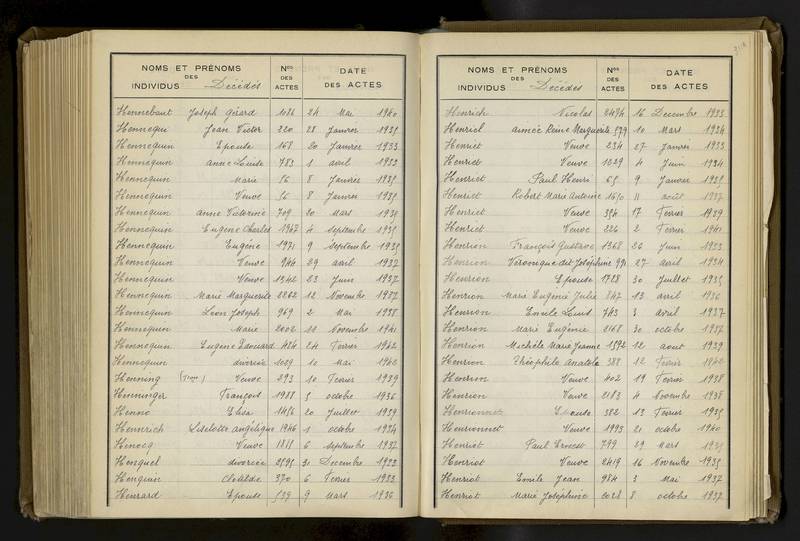 NOMS ET PRÉNOMS DES INDIVIDUS Décédés Nos DES ACTES DATE DES ACTES
Hennebant Joseph Gérard 1086 24 Mai 1940
Hennequi Jean Victor 220 28 Janvier 1935
Hennequin Epouse 168 20 Janvier 1933
Hennequin Anne Louise 783 1 avril 1933
Hennequin Marie 56 8 Janvier 1935
Hennequin Veuve 56 8 Janvier 1935
Hennequin Anne Victorine 709 20 Mars 1935
Hennequin Eugène Charles 1947 4 septembre 1935
Hennequin Eugène 1971 9 septembre 1935
Hennequin Veuve 946 29 avril 1937
Hennequin Veuve 1342 23 Juin 1937
Hennequin Marie Marguerite 2262 12 Novembre 1937
Hennequin Léon Joseph 969 2 Mai 1938
Hennequin Marie 2002 22 Novembre 1941
Hennequin Eugène Edouard 484 24 Février 1942
Hennequin divorcée 1029 10 Mai 1942
Henning Veuve 293 10 Février 1939
Henninger François 1988 5 octobre 1936
Henno Elise 1456 20 Juillet 1939
Hennrich Liselotte angélique 1946 1 octobre 1934
Henocq Veuve 1815 6 septembre 1937
Henquel divorcée 2595 31 Décembre 1933
Henquin Clotilde 370 6 Février 1933
Henrard Epouse 539 9 Mars 1936
NOMS ET PRÉNOMS DES INDIVIDUS Décédés Nos DES ACTES DATE DES ACTES
Henrich Nicolas 2494 16 Décembre 1933
Henriet Aimée Reine Marguerite 579 10 Mars 1934
Henriet Veuve 234 27 Janvier 1933
Henriet Veuve 1029 4 Juin 1934
Henriet Paul Henri 65 9 Janvier 1935
Henriet Robert Marie Antoine 1650 11 août 1937
Henriet Veuve 354 17 Février 1939
Henriet Veuve 226 2 Février 1941
Henrion François Gustave 1368 26 Juin 1933
Henrion Véronique dit Joséphine 791 27 avril 1934
Henrion Epouse 1728 30 Juillet 1935
Henrion Marie Eugénie Julie 847 13 avril 1936
Henrion Emile Louis 743 3 avril 1937
Henrion Marie Eugénie 2168 30 octobre 1937
Henrion Michèle Marie Jeanne 1592 12 août 1939
Henrion Théophile Anatole 388 12 Février 1942
Henrion Veuve 402 19 Février 1938
Henrion Veuve 2183 4 Novembre 1938
Henrionnet Epouse 382 13 Février 1935
Henrionnet Veuve 1993 21 octobre 1940
Henriot Paul Ernest 799 29 Mars 1935
Henriot Veuve 2419 16 Novembre 1935
Henriot Emile Jean 984 3 Mai 1937
Henriot Marie Joséphine 2028 8 octobre 1937